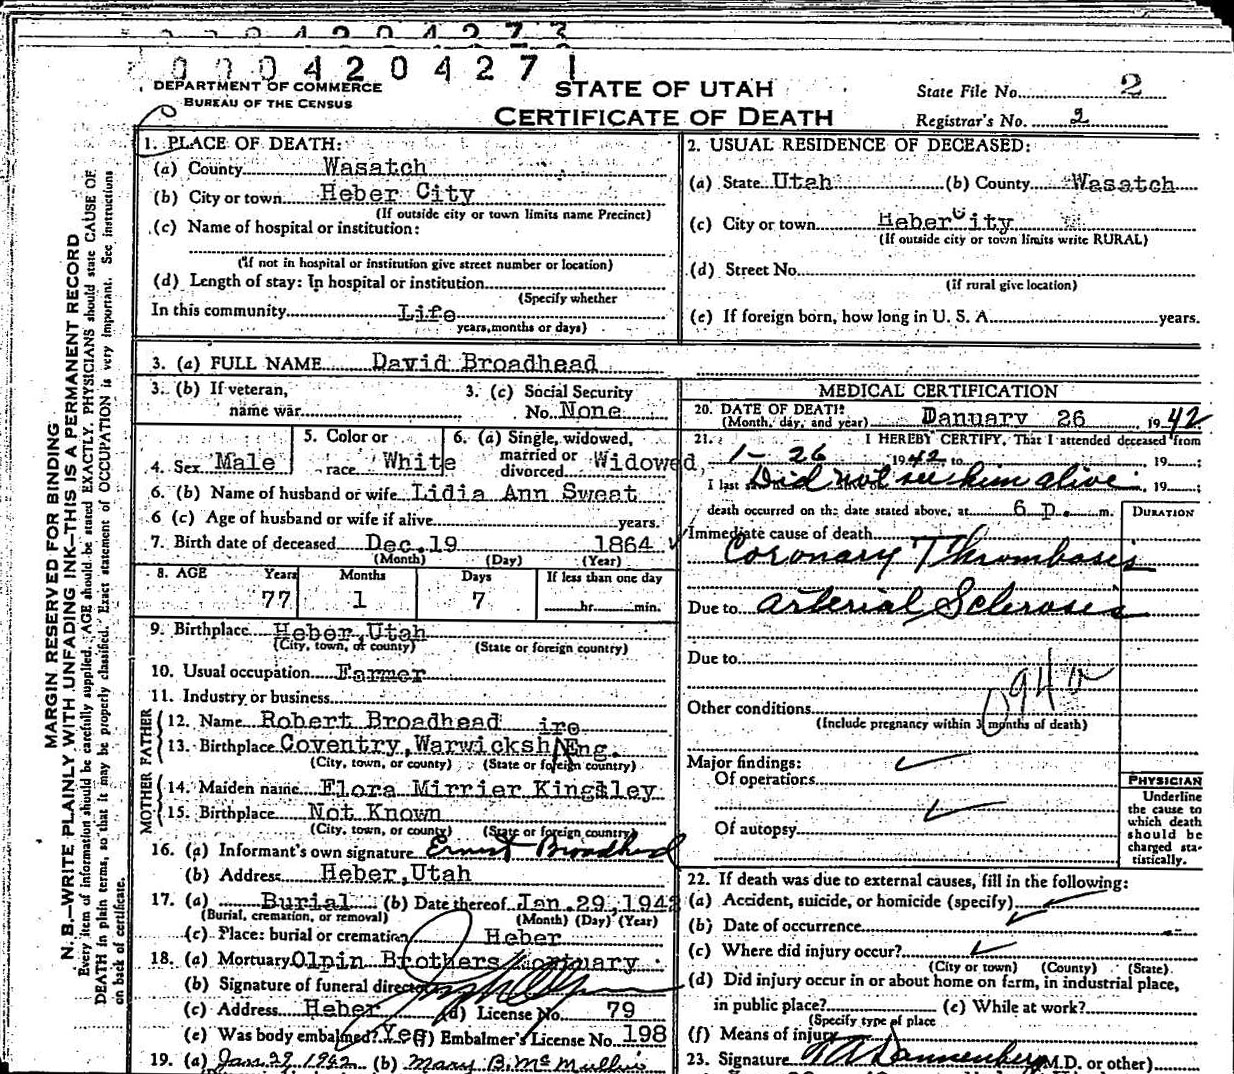 0004204273
0004204271
DEPARTMENT OF COMMERCE
BUREAU OF THE CENSUS
STATE OF UTAH
CERTIFICATE OF DEATH
State File No. 2
Registrar's No. 2
MARGIN RESERVED FOR BINDING
N. B.—WRITE PLAINLY WITH UNFADING INK—THIS IS A PERMANENT RECORD
Every item of information should be carefully supplied. AGE should be stated EXACTLY. PHYSICIANS should state CAUSE OF
DEATH in plain terms, so that it may be properly classified. Exact statement of OCCUPATION is very important. See instructions
on back of certificate.
1. PLACE OF DEATH:
(a) County Wasatch
(b) City or town Heber City
(If outside city or town limits name Precinct)
(c) Name of hospital or institution:
(If not in hospital or institution give street number or location)
(d) Length of stay: In hospital or institution
(Specify whether
In this community Life
years, months or days)
2. USUAL RESIDENCE OF DECEASED:
(a) State Utah (b) County Wasatch
(c) City or town Heber City
(If outside city or town limits write RURAL)
(d) Street No.
(If rural give location)
(e) If foreign born, how long in U. S. A. years.
3. (a) FULL NAME David Broadhead
3. (b) If veteran,
name war
3. (c) Social Security
No. None
4. Sex Male
5. Color or
race White
6. (a) Single, widowed,
married or
divorced Widowed
6. (b) Name of husband or wife Lidia Ann Sweat
6 (c) Age of husband or wife if alive years.
7. Birth date of deceased Dec. 19 1864
(Month) (Day) (Year)
8. AGE Years Months Days If less than one day
77 1 7 hr. min.
9. Birthplace Heber, Utah
(City, town, or county) (State or foreign country)
10. Usual occupation Farmer
11. Industry or business
FATHER
12. Name Robert Broadhead
ire
13. Birthplace Coventry, Warwicksh Eng.
(City, town, or county) (State or foreign country)
MOTHER
14. Maiden name Flora Mirrier Kingsley
15. Birthplace Not Known
(City, town, or county) (State or foreign country)
16. (a) Informant's own signature Ernest Broadhead
(b) Address Heber, Utah
17. (a) Burial (b) Date thereof Jan. 29, 1942
(Burial, cremation, or removal) (Month) (Day) (Year)
(c) Place: burial or cremation Heber
18. (a) Mortuary Olpin Brothers Mortuary
(b) Signature of funeral director
(c) Address Heber (d) License No. 79
(e) Was body embalmed? Yes (f) Embalmer's License No. 198
19. (a) Jan. 29 1942 (b) Mary B. McMullin
MEDICAL CERTIFICATION
20. DATE OF DEATH:
(Month, day, and year) Danuary 26 1942
21. I HEREBY CERTIFY, That I attended deceased from
1-26 1942 to 19 ;
I last Did not see him alive , 19 ;
death occurred on the date stated above, at 6 p. m.
DURATION
Immediate cause of death
Coronary Thrombosis
Due to Arterial Sclerosis
Due to
94a
Other conditions
(Include pregnancy within 3 months of death)
Major findings:
Of operations
Of autopsy
PHYSICIAN
Underline
the cause to
which death
should be
charged sta-
tistically.
22. If death was due to external causes, fill in the following:
(a) Accident, suicide, or homicide (specify)
(b) Date of occurrence
(c) Where did injury occur?
(City or town) (County) (State)
(d) Did injury occur in or about home on farm, in industrial place,
in public place? (e) While at work?
(Specify type of place
(f) Means of injury
23. Signature Dannenberg (M.D. or other)